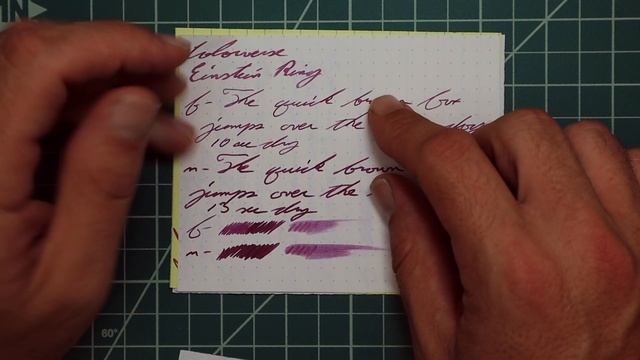 Colorverse
Einstein Ring
f- The quick brown fox
jumps over the dog
10 sec dry
m- The quick brown
jumps over the
13 sec dry
f-
m-
60°